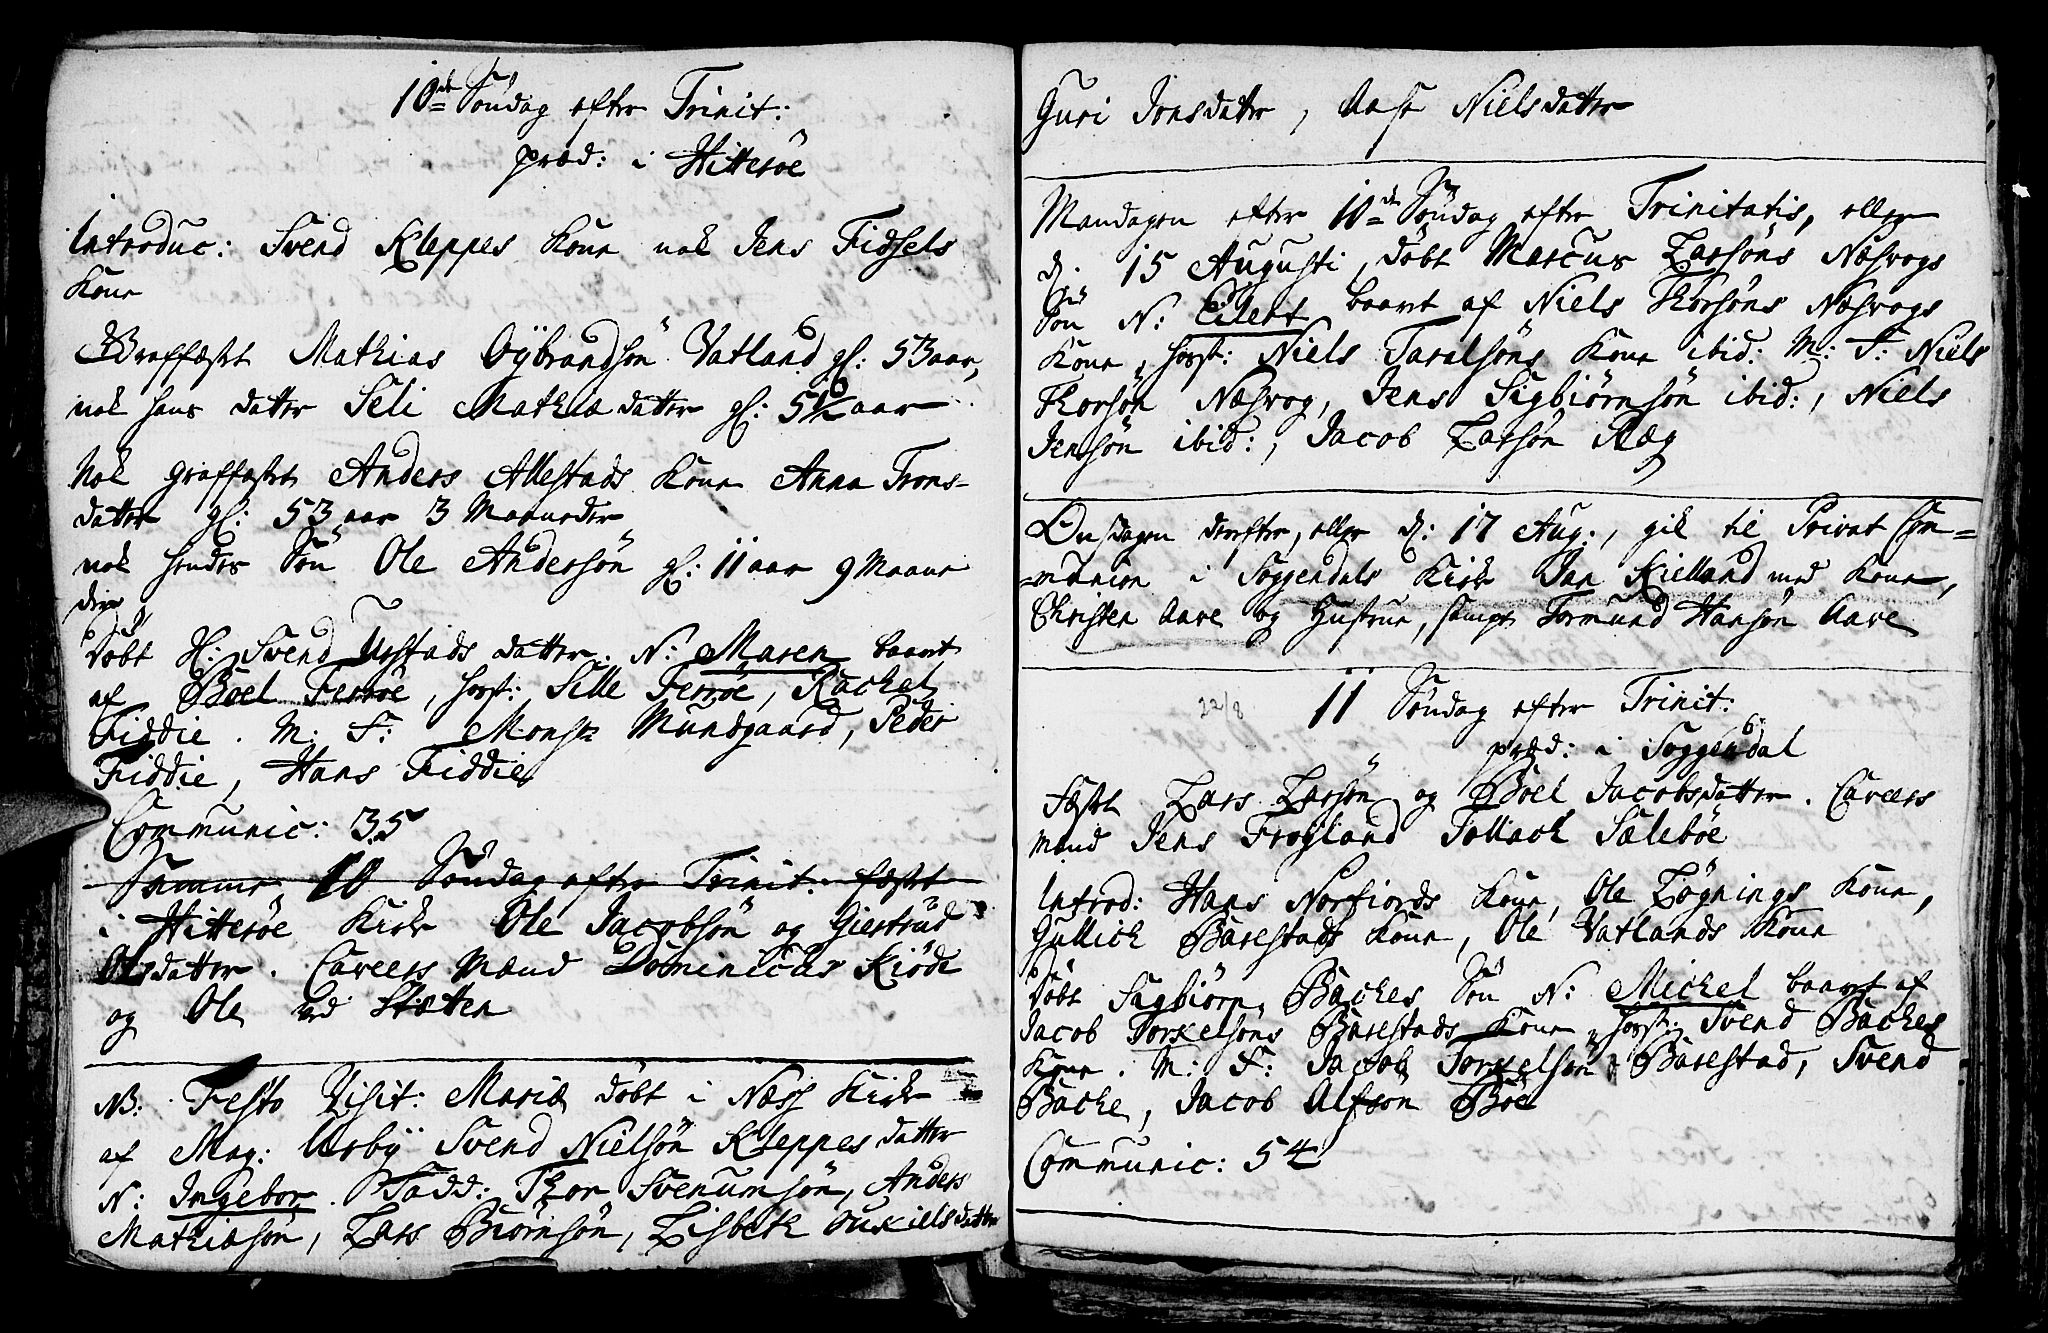 10de Søndag efter Trinit:
præd: i Hitterøe
Introduc: Svend Kleppes Kone nok Jens Fidsels
Kone
Graffæstet Mathias Gÿbrandsøn Vatland gl: 53 aar,
nok hans datter Seli Mathiædatter gl: 5½ aar
Nok graffæstet Anders Allestads Kone Anna Trons-
datter gl: 53 aar 3 Maaneder
nok hendes Søn Ole Andersøn gl: 11 aar 9 Maane
der
døbt H: Svend Urstads datter. N: Maren baaret
af Boel Ferrøe, hosst: Sille Ferrøe, Rachel
Fiddie. M: F: Monsr Mundgaard, Peder
Fiddie, Hans Fiddie
Communic: 35
Samme 10 Søndag efter Trinit: fæstet
i Hitterøe Kirke Ole Jacobsøn og Giertrud
Olsdatter. Caveers Mænd Dominicus Kiøde
og Ole ved Støtten
NB: Festo Visit: Mariæ døbt i Næss Kirke
af Mag: Urbÿ Svend Nielsøn Kleppes datter
N: Ingebor. Fadd: Thor Svenumsøn, Anders
Mathiæsøn, Lars Biørnsøn, Lisbeth Auskielsdatter
Guri Jonsdatter, Aase Nielsdatter
Mandagen efter 10de Søndag efter Trinitatis, eller
d. 15 Augusti, døbt Marcus Larsøns Næsvogs
Søn N: Eilert baaret af Niels Thorsøns Næsvogs
Kone, hosst: Niels Taralsøns Kone ibid: M: F: Niels
Thorsøn Næsvog, Jens Sigbiørnsøn ibid:, Niels
Jensøn ibid:, Jacob Larsøn Ræg
Onsdagen derefter, eller d: 17 Aug:, gik til Privat Com=
=munion i Soggendals Kirke Jan Kielland med Kone,
Christen Aare og Hustrue, sampt Tormund Hansøn Aare
22/8 11 Søndag efter Trinit:
præd: i Soggendal
fæstet Lars Larsøn og Boel Jacobsdatter. Caveers
mænd Jens Frøyland Tollach Sælebøe
Introd: Hans Norfiords Kone, Ole Løgnings Kone,
Gullich Barestads Kone, Ole Vatlands Kone
døbt Sagbiørn Baches Søn N: Michel baaret af
Jacob Torkelsøns Barestads Kone, hosst: Svend Baches
Kone. M: F: Jacob Torkelsøn Barestad, Svend
Bache, Jacob Alfsøn Bøe
Communic: 54